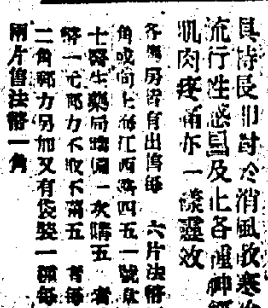 其特長即對於消風散寒
流行性感冒及七各種神經
肌肉疼痛亦一樣靈效
各藥房皆有出售每　六片法幣
角或向上海江西路四五一號
十醫生藥局購備一次購五　者
幣一元郵力不收不滿五　者每
二角郵力另加又有袋裝一種每
兩片售法幣一角